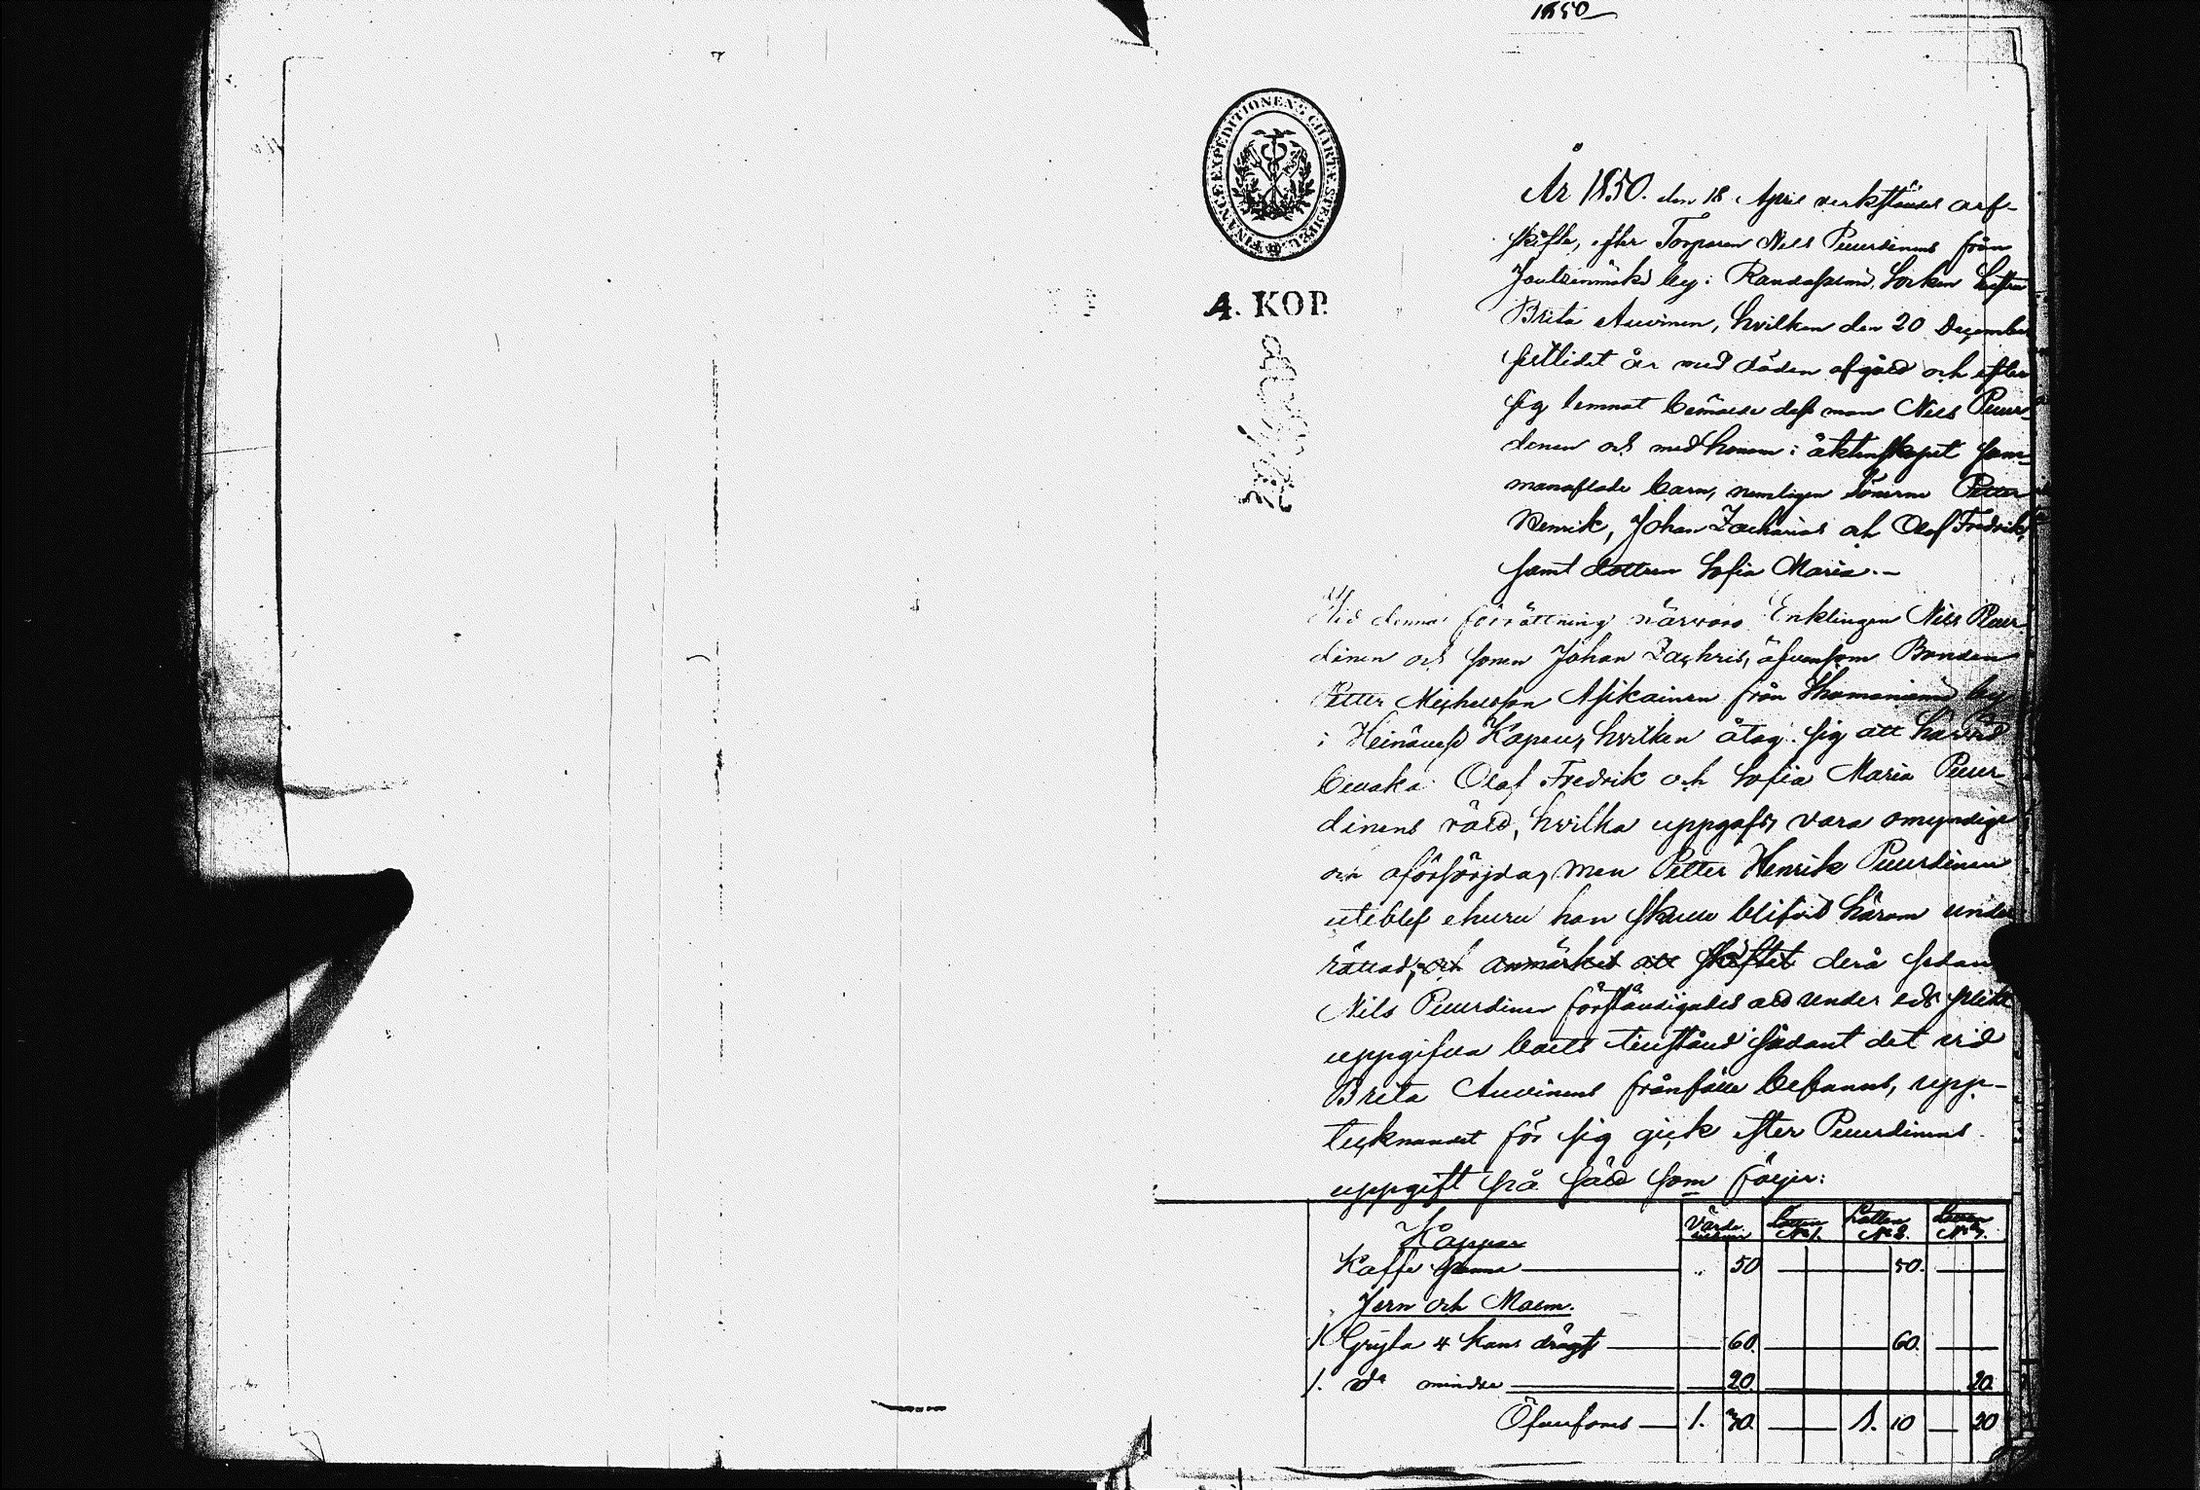 1850
FINANCE EXPEDITIONENS CHARTÆ STEMPEL
4. KOP.
År 1850. den 18 April verkstäldes arf-
skifte, efter Torparen Nils Puurdinens från
Joutsenmäki by i Randasalmi Socken hustru
Brita Auvinen, hvilken den 20 December
sistlidet år med döden afgått och efter
sig lemnat bemälde dess man Nils Puur-
dinen och med honom i äktenskapet sam-
manaflade barn, nemligen sönerne Petter
Henrik, Johan Zacharias och Olof Fredrik,
samt dottren Sofia Maria.-
Vid denna förrättning närvoro Enklingen Nils Puur
dinen och sonen Johan Zachris, äfvensom Bonden
Petter Michelsson Asikainen från by
i Heinävesi Kapell, hvilken åtog sig att härvid
bevaka Olof Fredrik och Sofia Maria Puur-
dinens rätt, hvilka uppgafs vara omyndige
och oförsörjda, men Petter Henrik Puurdinen
uteblef ehuru han skall blifvit härom under
rättad, och anmärkt att skiftet derå sedan
Nils Puurdinen förständigades att under eds plikt
uppgifva boets tillstånd sådant det vid
Brita Auvinens frånfälle befanns, upp-
tecknandet för sig gick efter Puurdinens
uppgift på sätt som följer:
Värde Lotten N 1. Lotten N 2. Lotten N 3.
Koppar
Kaffe panna 50 50.
Jern och Malm.
1 Gryta 4 kans drägt 60. 60.
1. do mindre 20. 20.
Öfverföres 1. 30. 1. 10 20